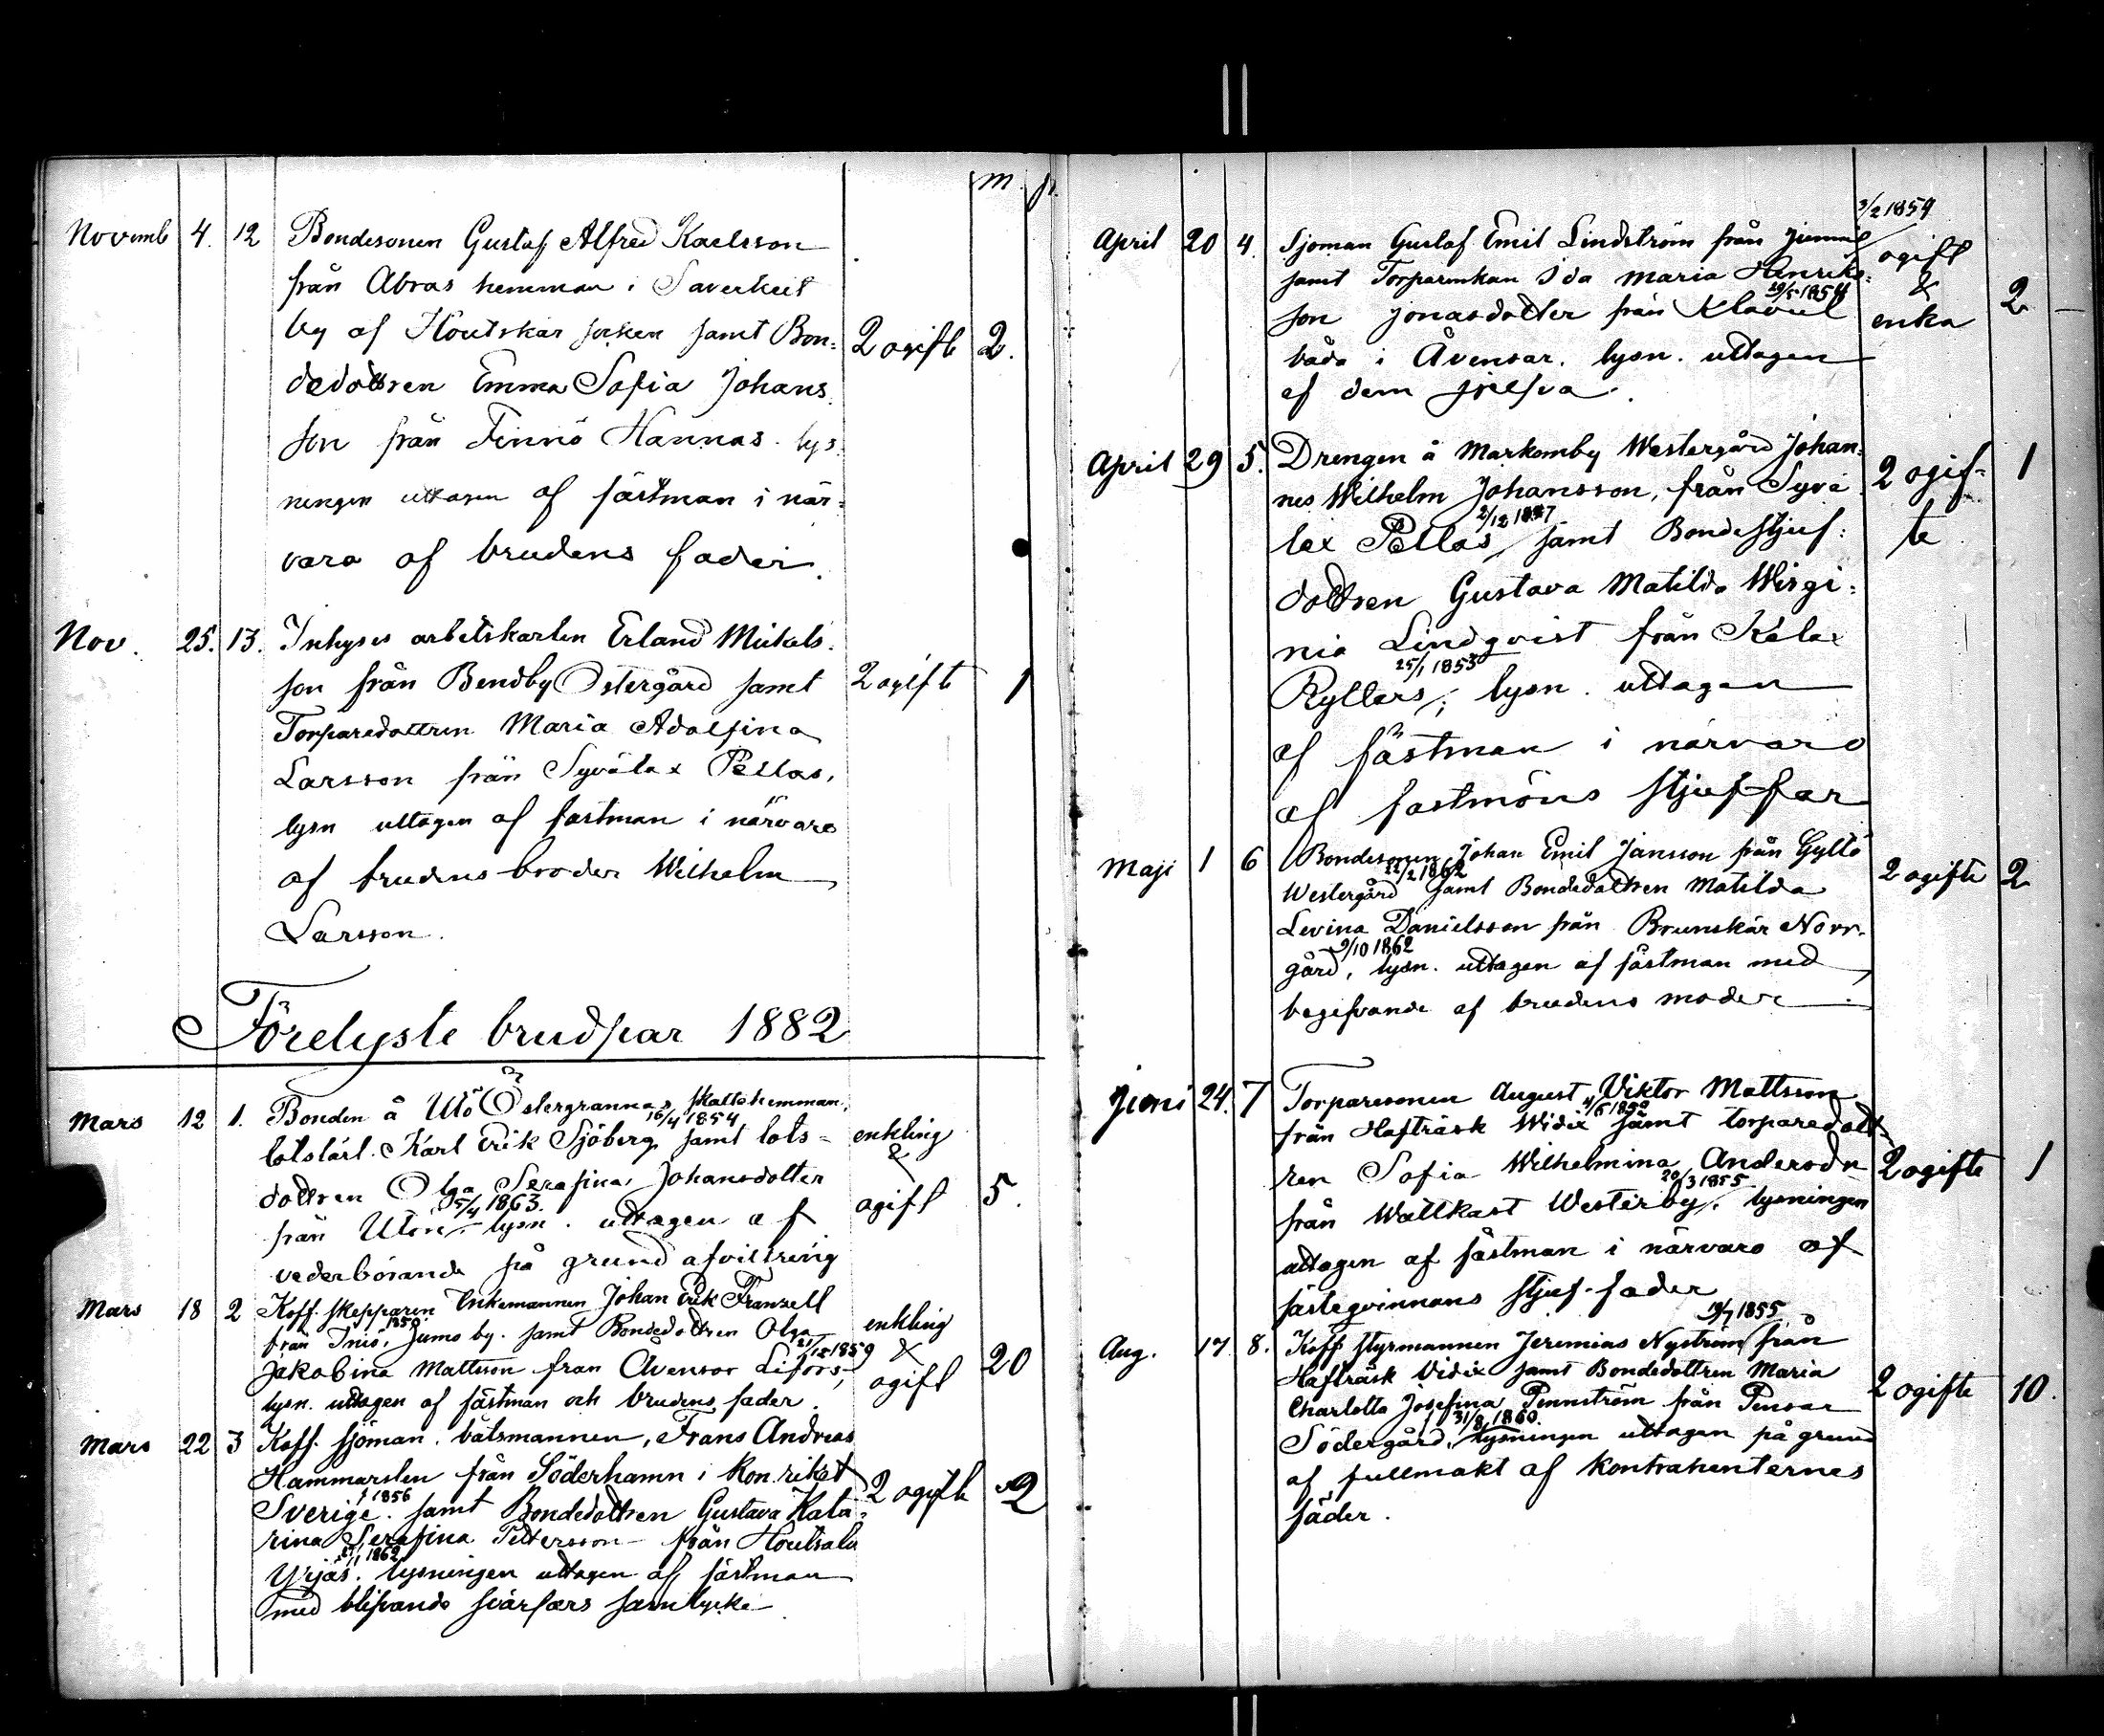 m. p.
Novemb 4. 12 Bondesonen Gustaf Alfred Karlsson
från Abras hemman i Saverkeit
by af Houtskär socken samt Bon=
dedottren Emma Sofia Johans
son från Finnö Hannas. lys
ningen uttagen af fästman i när=
vara af brudens fader.
2 ogifte 2.
Nov. 25. 13. Inhyses arbetskarlen Erland Mickels
son från Bendby Östergård samt
Torparedottren Maria Adolfina
Larsson från Syvälax Pellas,
lysn uttagen af fästman i närvaro
af brudens broder Wilhelm
Larsson.
2 ogifte 1
Förelyste brudpar 1882
Mars 12 1. Bonden å Utö Östergrannas skattehemman,
16/4 1854
lotslärl. Karl Erik Sjöberg samt lots=
dottren Olga Serafina Johansdotter
15/4 1863.
från Utön. lysn. uttagen af
vederbörande på grund af vittring
enkling
&
ogift 5.
Mars 18 2 Koff. skepparen Enkemannen Johan Erik Franzell
1850
från Iniö, Jumo by. samt Bondedottren Olga
21/12 1859
Jakobina Mattsson från Åvensor Lifors,
lysn. uttagen af fästman och brudens fader.
enkling
&
ogift 20
Mars 22 3 Koff. sjöman, båtsmannen, Frans Andreas
Hammarsten från Söderhamn i Kon. riket
1856
Sverige. samt Bondedottren Gustava Kata=
rina Serafina Pettersson från Houtsala
1862
Yrjäs. lysningen uttagen af fästman
med blifvande svärfars samtycke
2 ogifte 2
3/2 1859
April 20 4. Sjöman Gustaf Emil Lindström från
samt Torparenkan Ida Maria Henriks=
29/5 1854
son Jonasdotter från Klavul
båda i Åvensar. lysn. uttagen
af dem sjelfva.
ogift
&
enka 2
April 29 5. Drengen å Markomby Westergård Johan=
nes Wilhelm Johansson, från Syvä
lax Pellas samt Bondestjuf=
dottren Gustava Matilda Wirgi=
nia Lindqvist från Kälax
25/1 1853
Ryllars; lysn. uttagen
af fästman i närvaro
af fästmöns stjuf-far
2 ogif=
te 1
Maji 1 6 Bondesonen Johan Emil Jansson från Gyltö
22/2 1862
Westergård samt Bondedottren Matilda
Levina Danielsson från Brunskär Norr=
9/10 1862
gård, lysn. uttagen af fästman med
begifvande af brudens moder.
2 ogifte 2
Juni 24. 7 Torparesonen August Viktor Mattsson
från Hafträsk Widix samt torparedott=
ren Sofia Wilhelmina Andersdr
20/3 1855
från Wattkast Westerby. lysningen
uttagen af fästman i närvaro af
fästeqvinnans stjuf-fader
2 ogifte 1
19/7 1855
Aug. 17 8. Koff styrmannen Jeremias Nyström från
Hafträsk Vidix samt Bondedottren Maria
Charlotta Josefina Pennström från Pensar
31/8 1860.
Södergård, lysningen uttagen på grund
af fullmakt af kontrahenternes
fäder.
2 ogifte 10.